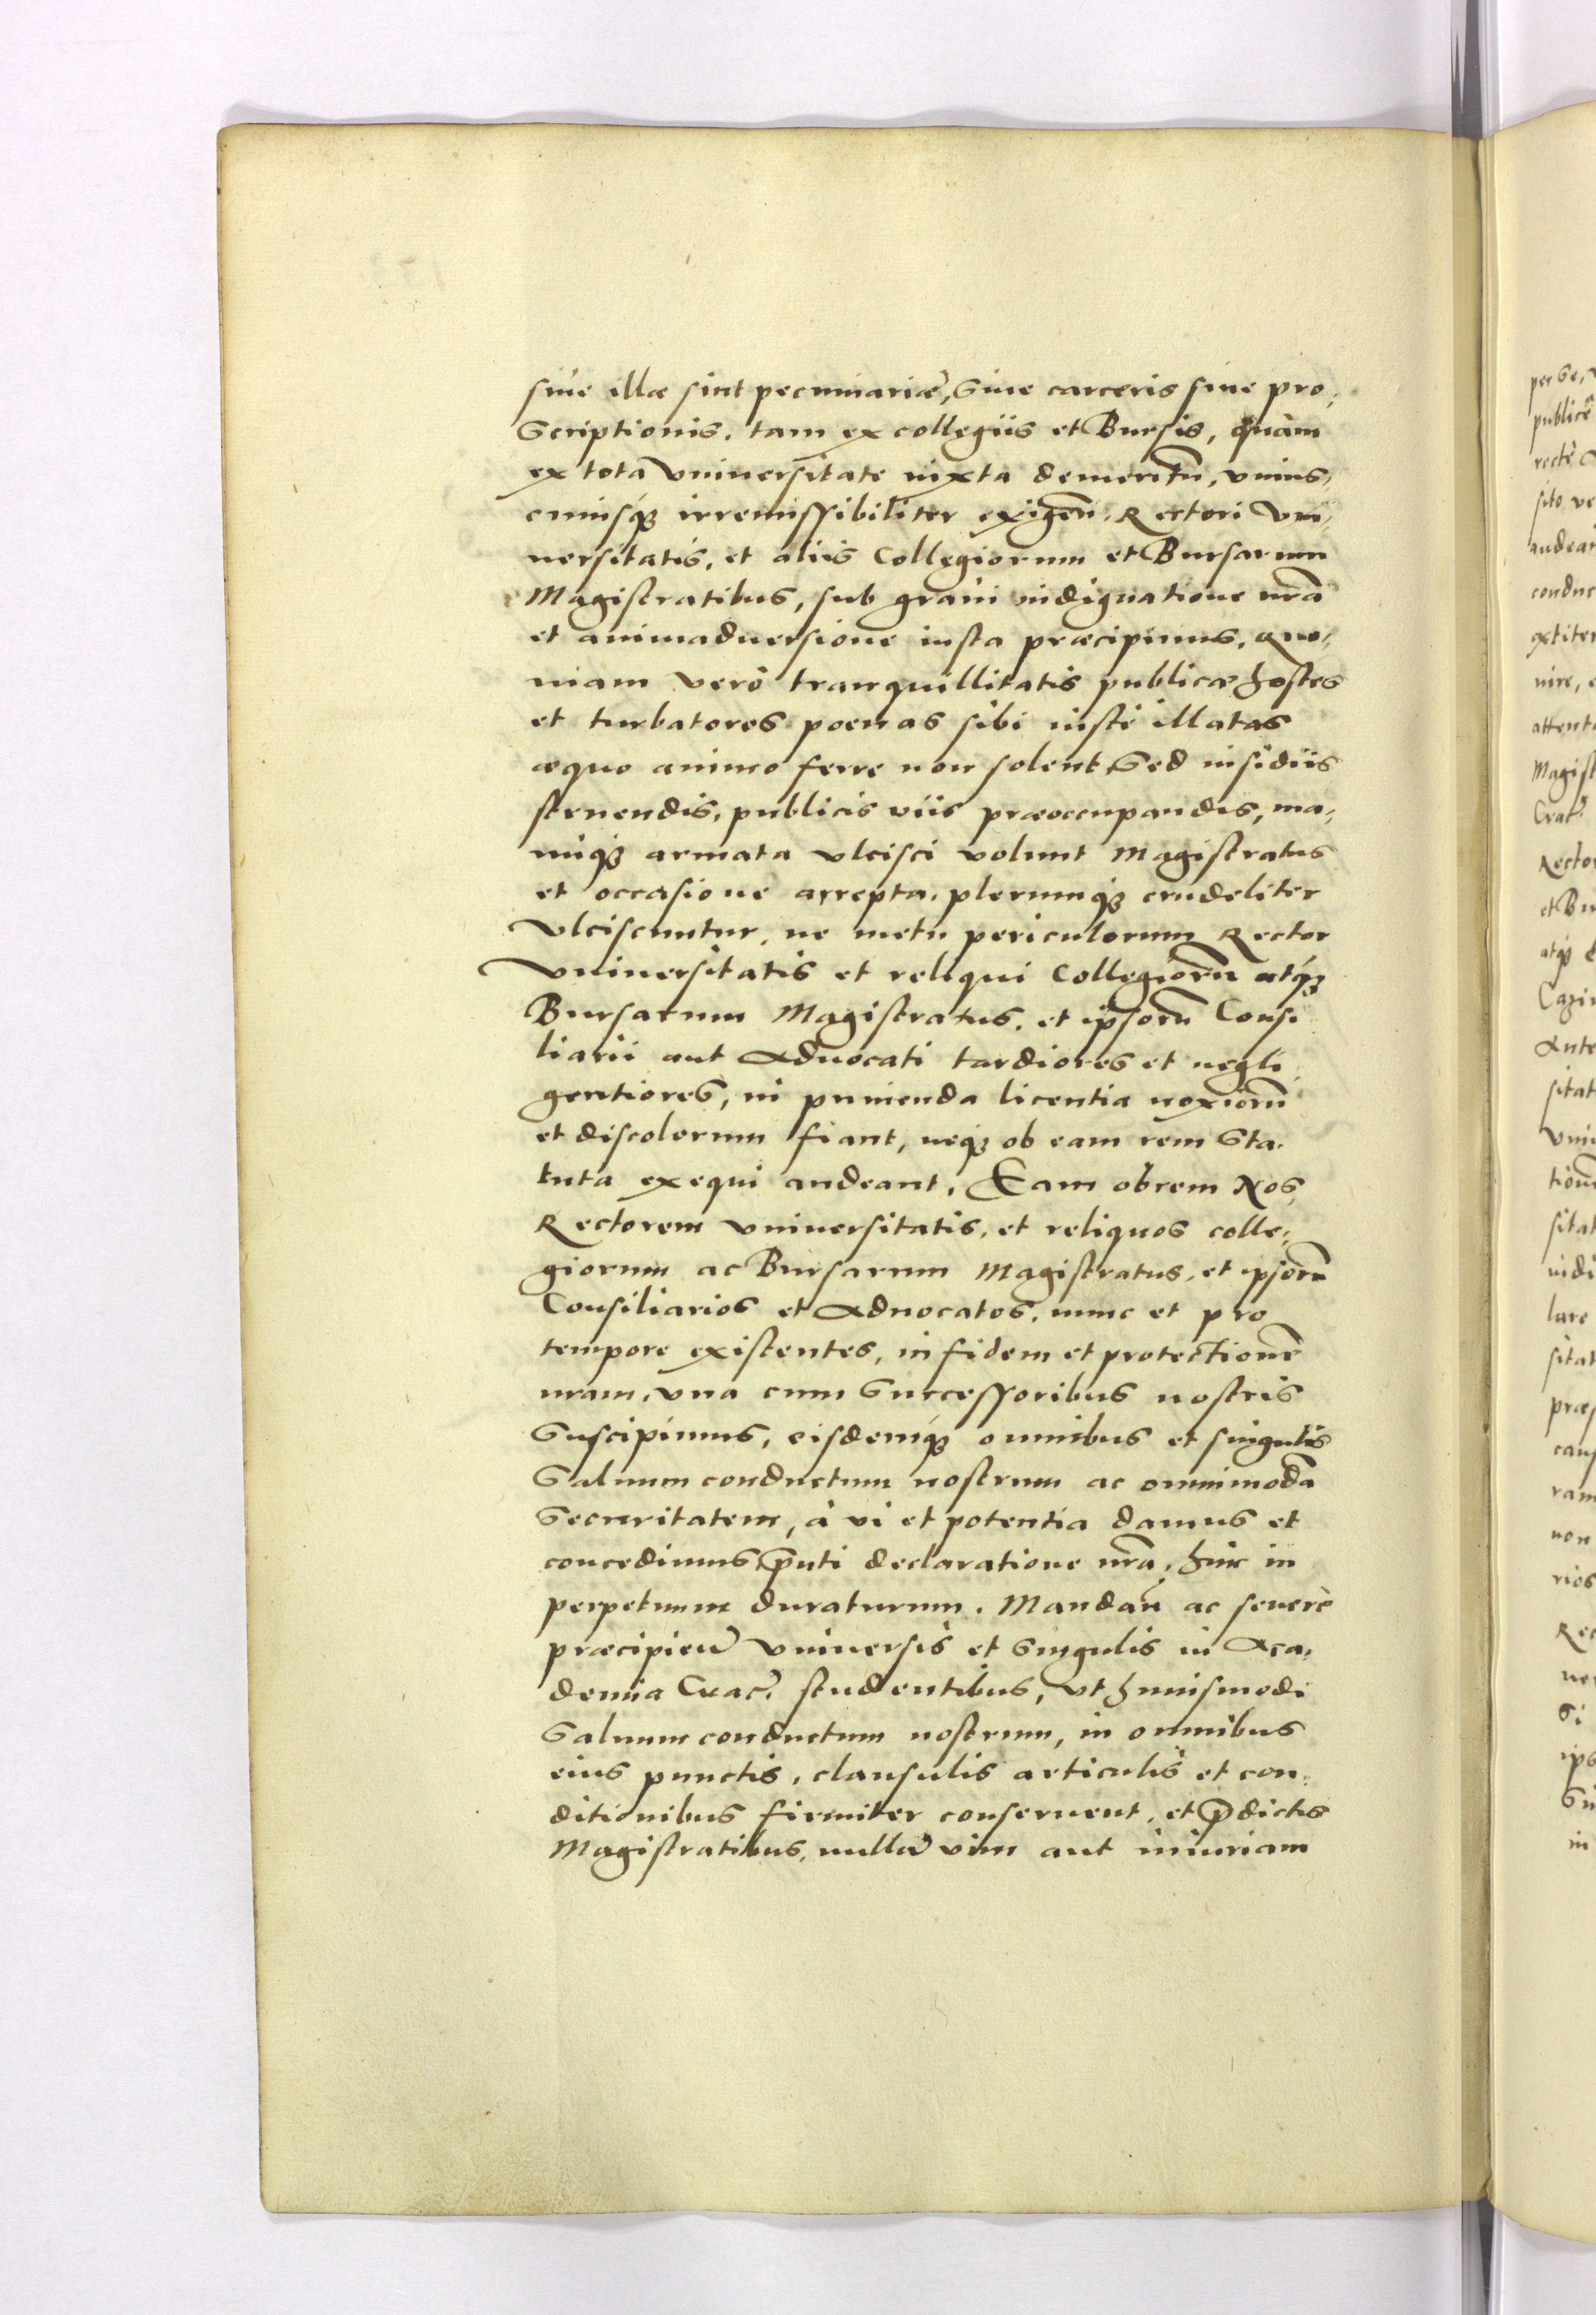 siue illæ sint pecuniariæ, Siue carceris siue pro,
Scriptionis, tam ex collegiis et Bursis, quàm
ex tota Vniuersitate iuxta demeritũ, vnius,
cuiusq3 irremissibiliter exigeñ. Rectori Vni,
uersitatis, et aliis Collegiorum et Bursarum
Magistratibus, sub graui indignatione nr̃a
et animaduersione iusta præcipimus. Quo,
niam verò tranquillitatis publicæ hostes
et turbatores poenas sibi iustè illatas
æquo animo ferre non solent Sed insidiis
struendis, publicis viis præoccupandis, ma,
nuq3 armata vlcisci volunt Magistratus
et occasione arrepta, plerumq3 crudeliter
Vlciscuntur, ne metu periculorum Rector
Vniuersitatis et reliqui Collegiorũ atq3
Bursarum Magistratus, et ipsorũ Consi
liarii aut Aduocati tardiores et negli
gentiores, in punienda licentia noxiorũ
et discolorum fiant, neq3 ob eam rem Sta.
tuta exequi audeant. Eam obrem Nos
Rectorem Vniuersitatis, et reliquos colle,
giorum ac Bursarum Magistratus, et ipsorũ
Consiliarios et Aduocatos, nunc et pro
tempore existentes, in fidem et protectionẽ
nram, vna cum Successoribus nostris
Suscipimus, eisdemq3 omnibus et singulis
Saluum conductum nostrum ac omnimodã
Securitatem, à vi et potentia damus et
concedimus p̃nti declaratione nr̃a, hinc in
perpetuum duraturum. Mandañ ac seuerè
præcipieñ Vniuersis et Singulis in Aca,
demia Crac̃. studentibus, vt huiusmodi
Saluum conductum nostrum, in omnibus
eius punctis, clausulis articulis et con,
ditionibus firmiter conseruent, et p̃dictis
Magistratibus, nullã vim aut iniuriam